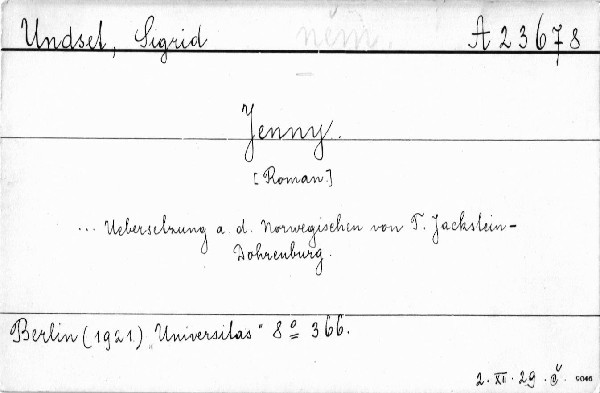 Undset, Sigrid něm. A 23678
Jenny.
[Roman.]
... Uebersetzung a. d. Norwegischen von T. Jackstein-
Dohrenburg.
Berlin (1921.) „Universitas" 8º 366.
2. XII. 29.